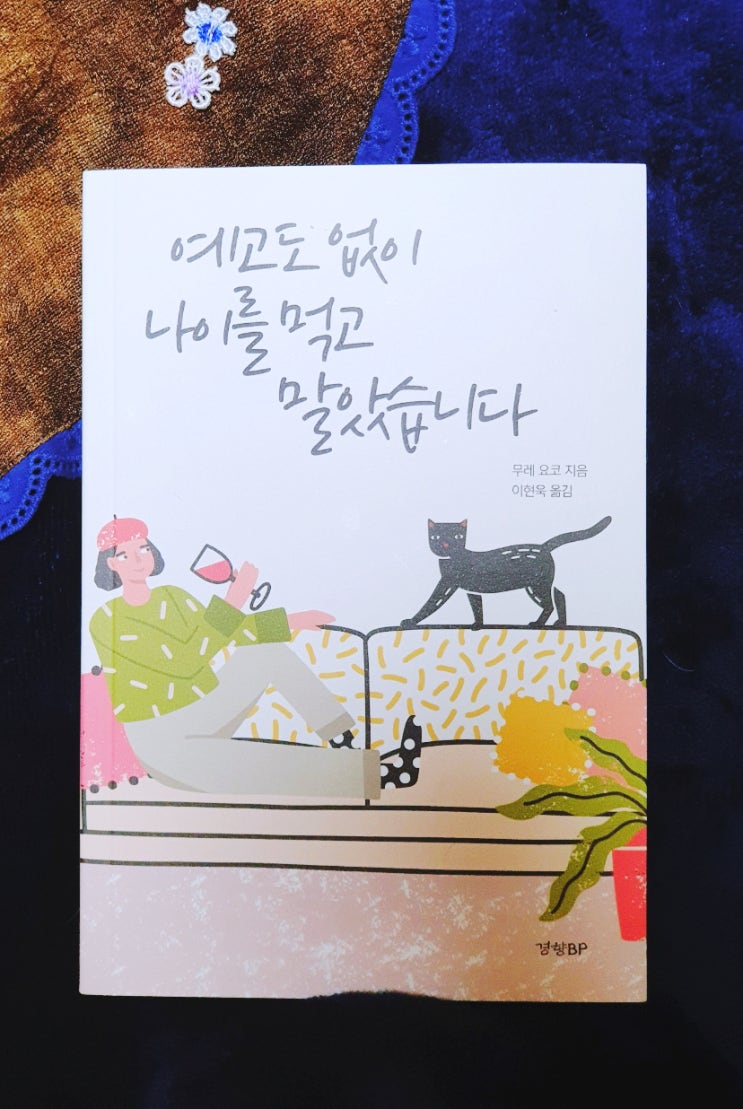 예고도 없이
나이를 먹고
말았습니다
무레 요코 지음
이현욱 옮김
경향BP